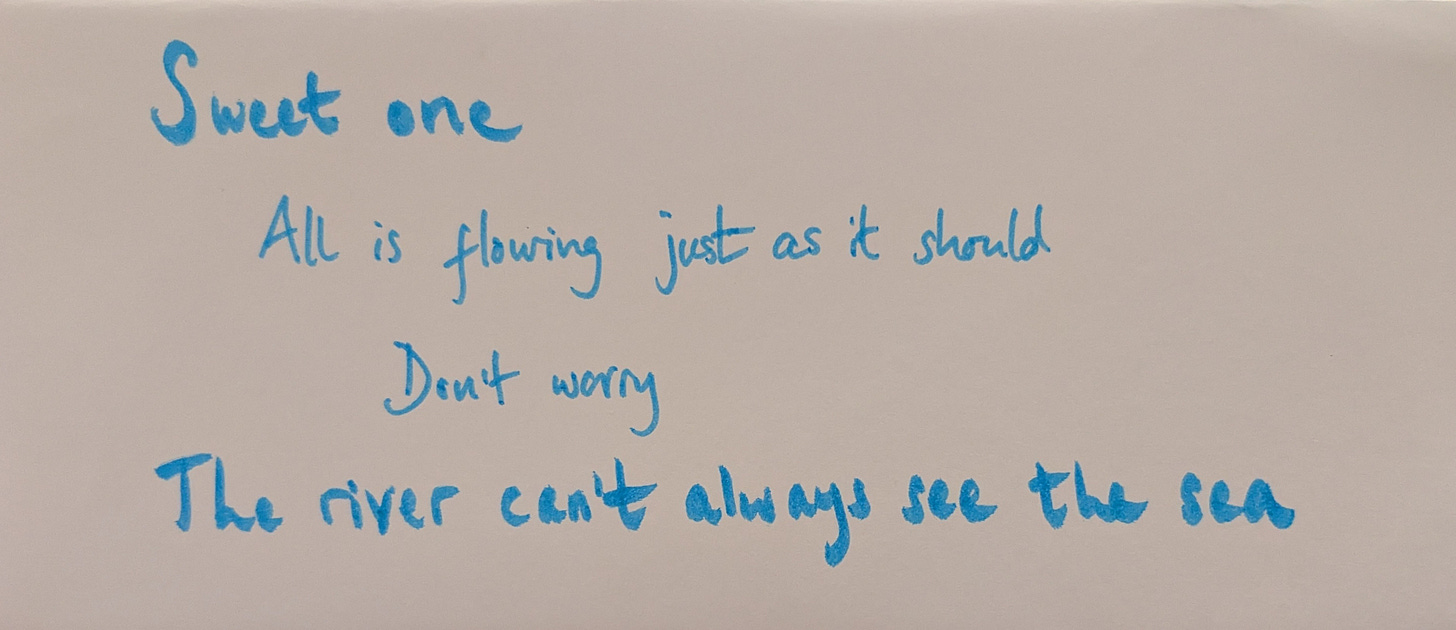 Sweet one
All is flowing just as it should
Don't worry
The river can't always see the sea